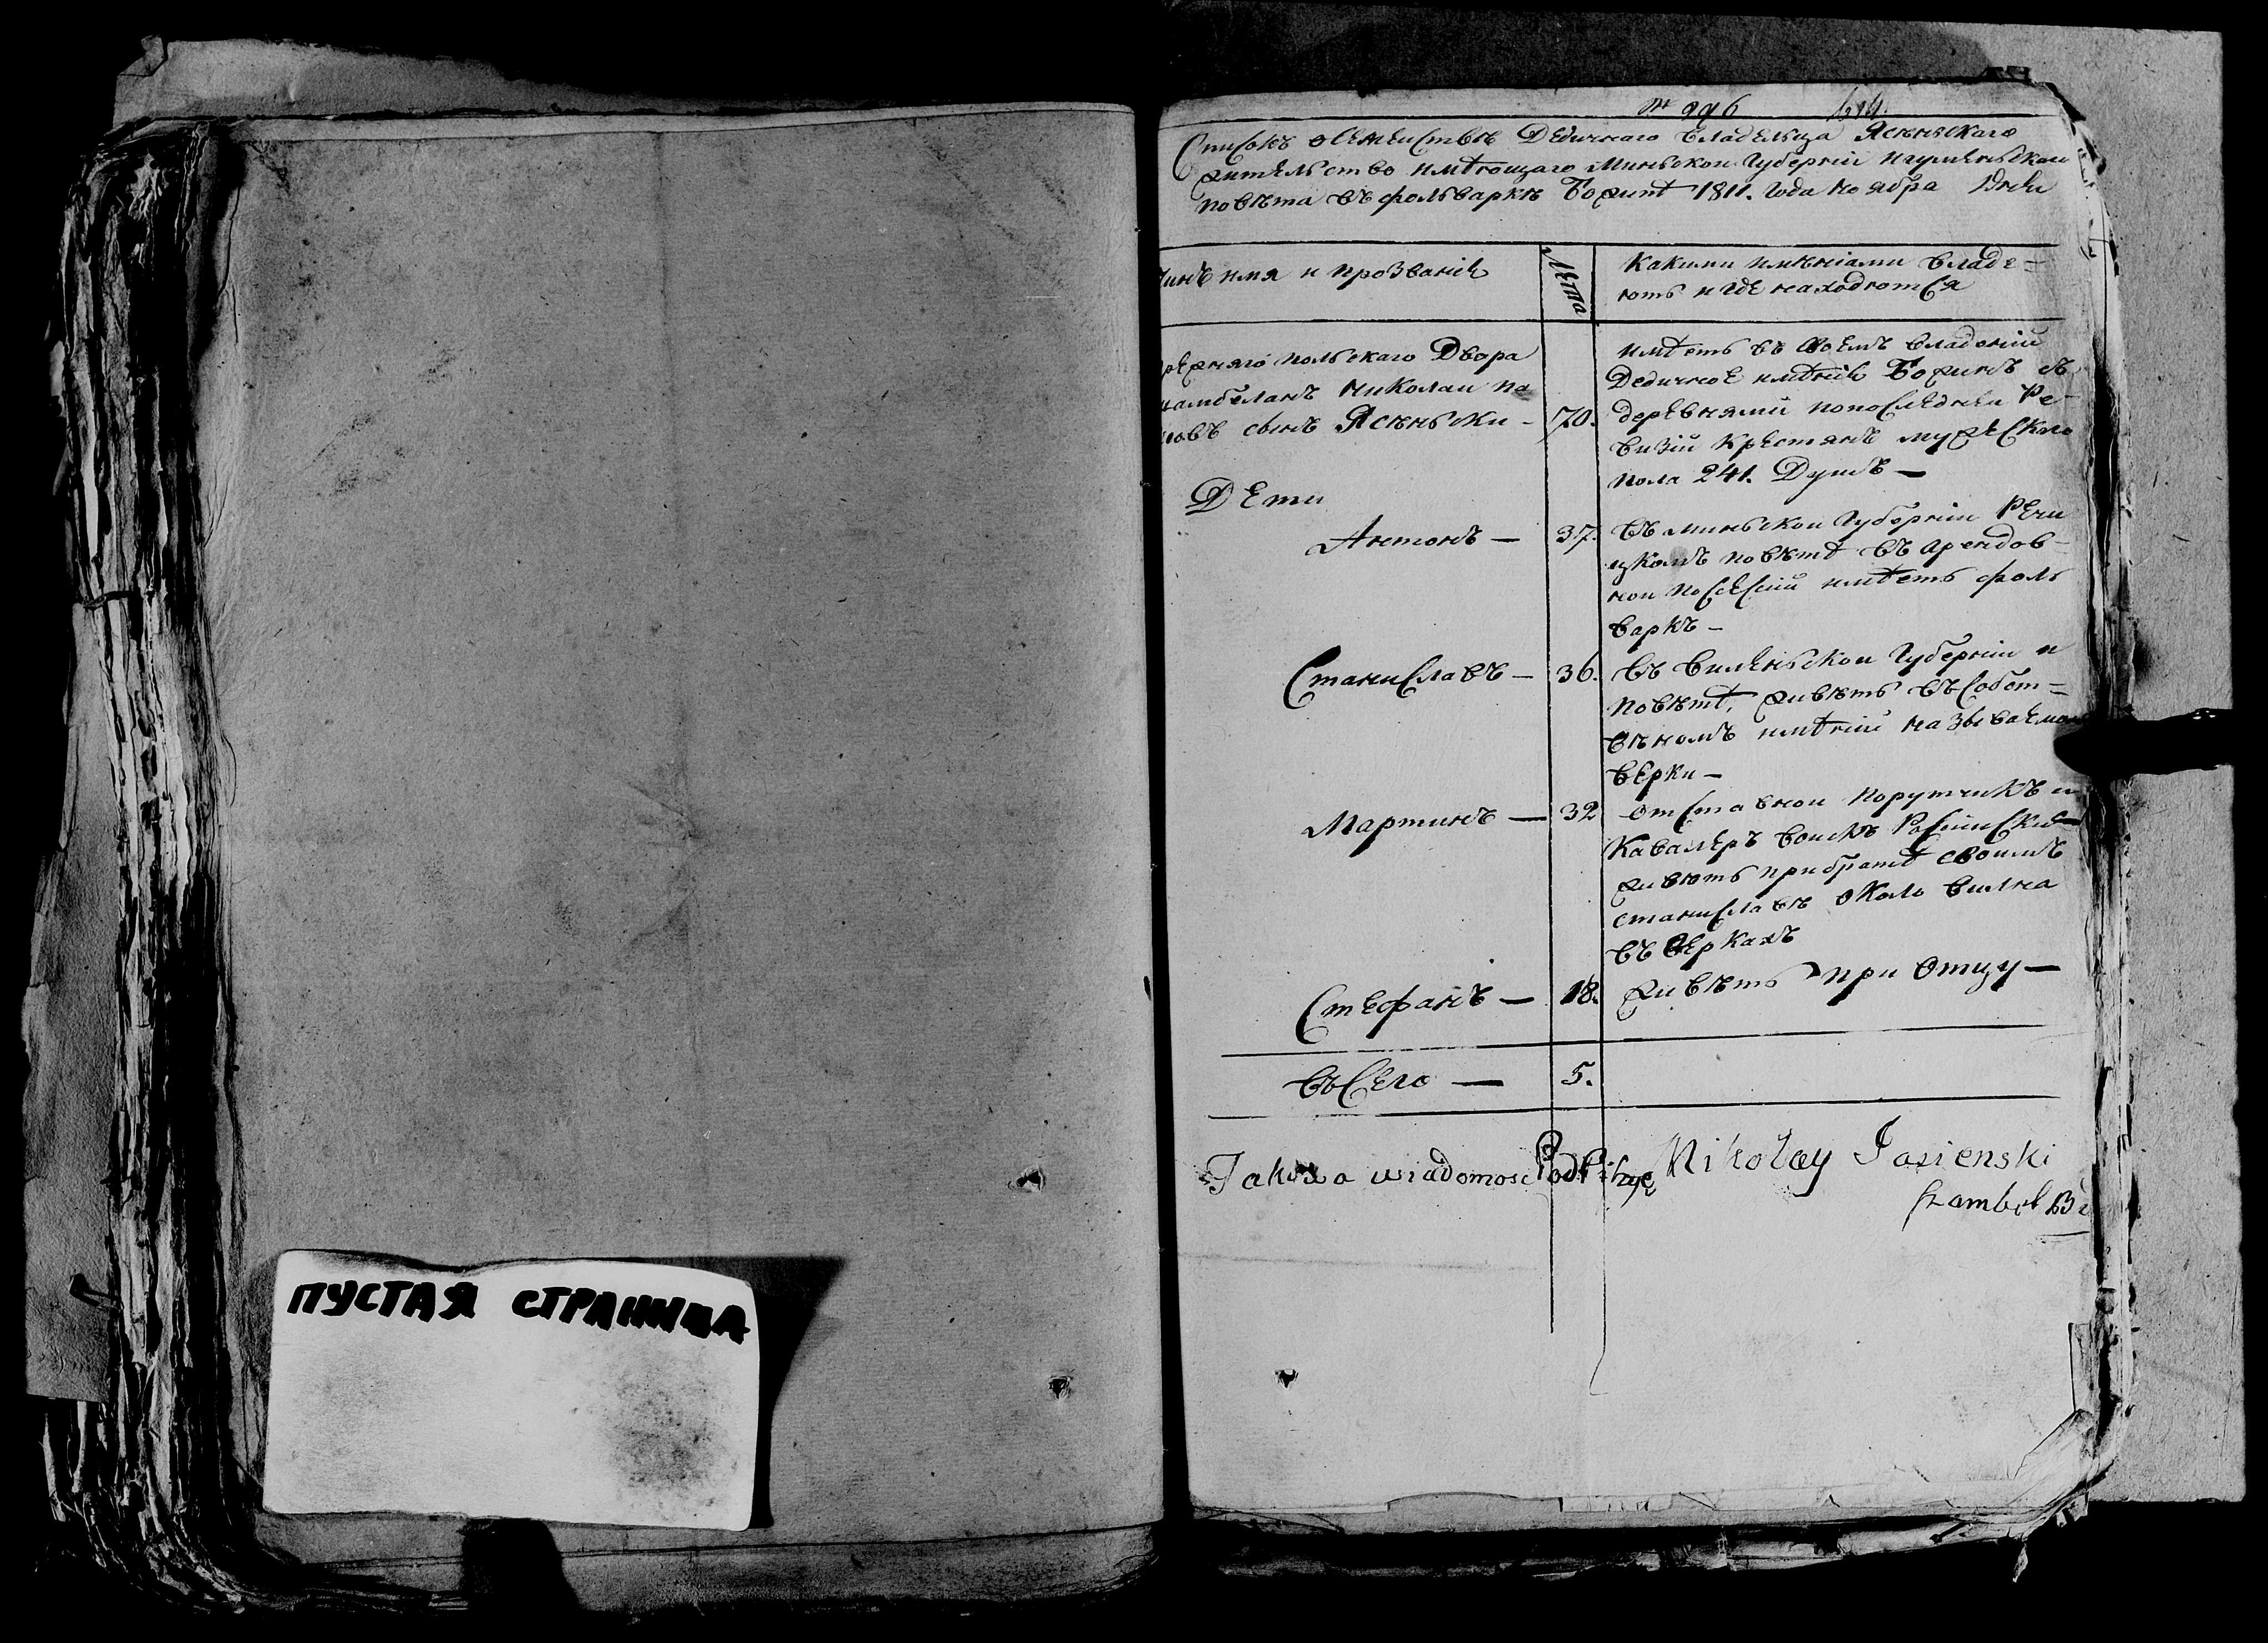 ПУСТАЯ СТРАНИЦА
№ 996
Списокъ о семеиствѣ Дедичнаго владельца Ясѣньскаго
жительство имѣющаго Миньскои Губерніи Игуменьского
повѣта въ фольваркѣ Божинѣ 1811. Года ноября
чинъ имя и прозваніе
Лѣта
Какими имѣніами владе=
ютъ и где находютса
режняго польскаго Двора
камбеланъ Николаи
новъ сынъ Ясѣньски - 70.
имѣетъ въ своемъ владѣніи
Дедичное имѣніе Божинъ съ
деревнями попоследнеи Ре-
визіи крестянъ мужеского
пола 241. Душъ —
Дети
Антонъ — 37.
въ миньскои Губерніи Речи
цкомъ повѣтѣ въ арендов-
нои посесіи имѣетъ фоль
варкъ -
Станиславъ — 36.
въ виленьскои Губерніи и
повѣтѣ, живѣтъ въ собст=
вѣномъ имѣніи называемом
верки -
Мартинъ — 32
отставнои порутчикъ и
кавалеръ воискъ Росіиски
живѣтъ при братѣ своимъ
станиславѣ около вилна
въ веркахъ
Стефанъ — 18.
живѣтъ при отцу —
въсего — 5.
Takowa wiadomosc Podpisuję Mikołay Jasienski
szambel